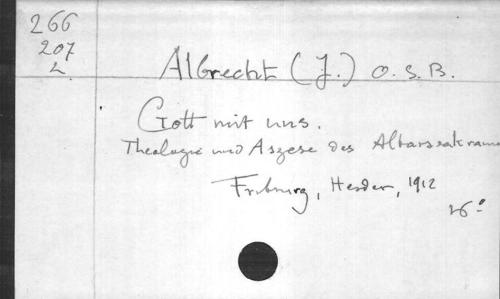 266
207
L.
Albrecht (J.) O. S. B.
Gott mit uns.
Theologie und Aszese des Altarssakrame
Friburg, Herder, 1912
16°